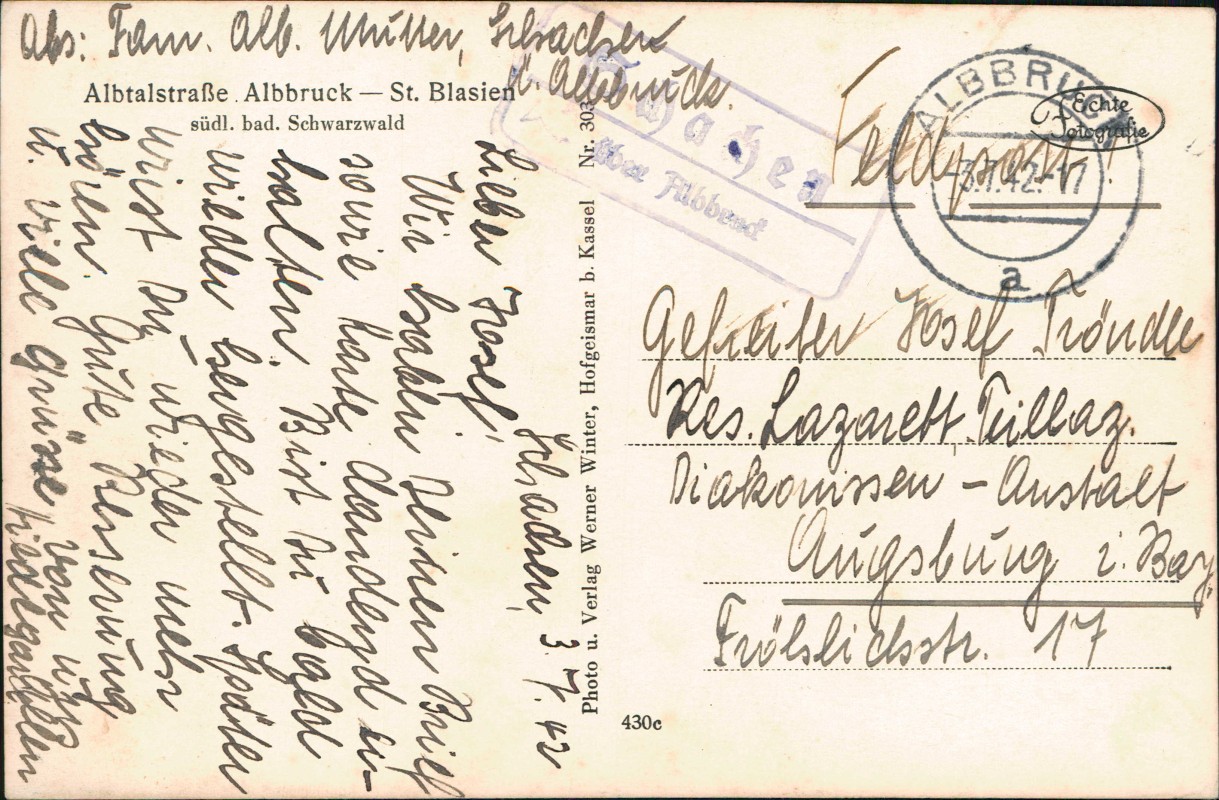 Abs: Fam. Alb. Mutter, Schachen
ü. Albbruck.
Albtalstraße Albbruck — St. Blasien
südl. bad. Schwarzwald
Schachen, 3. 7. 42
Lieber Josef!
Wir haben Deinen Brief
sowie Karte dankend er-
halten. Bist Du bald
wieder hergestellt. Später
wirst Du wieder mehr
hören. Gute Besserung
u. viele Grüße von uns
Photo u. Verlag Werner Winter, Hofgeismar b. Kassel Nr. 303
430c
Schachen
über Albbruck
Feldpost!
ALBBRUCK
-3.7.42.-17
a
Echte
Fotografie
Gefreiter Josef Tröndle
Res. Lazarett, Teillaz.
Diakonissen - Anstalt
Augsburg i. Bay.
Fröhlichstr. 17